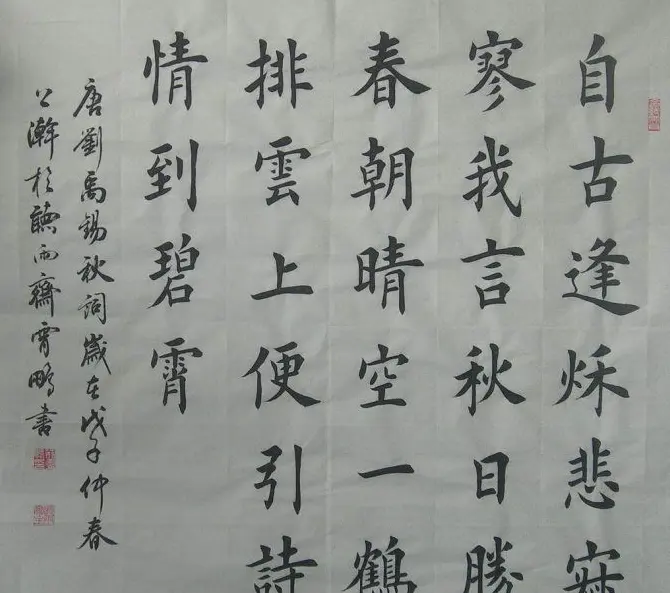 自古逢秌悲寂
寥我言秋日勝
春朝晴空一鶴
排雲上便引詩
情到碧霄
唐劉禹錫秋詞歲在戊子仲春
公瀚於聽雨齋霄鵬書